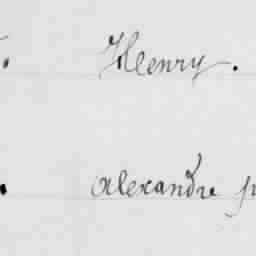 Henry.
alexandre